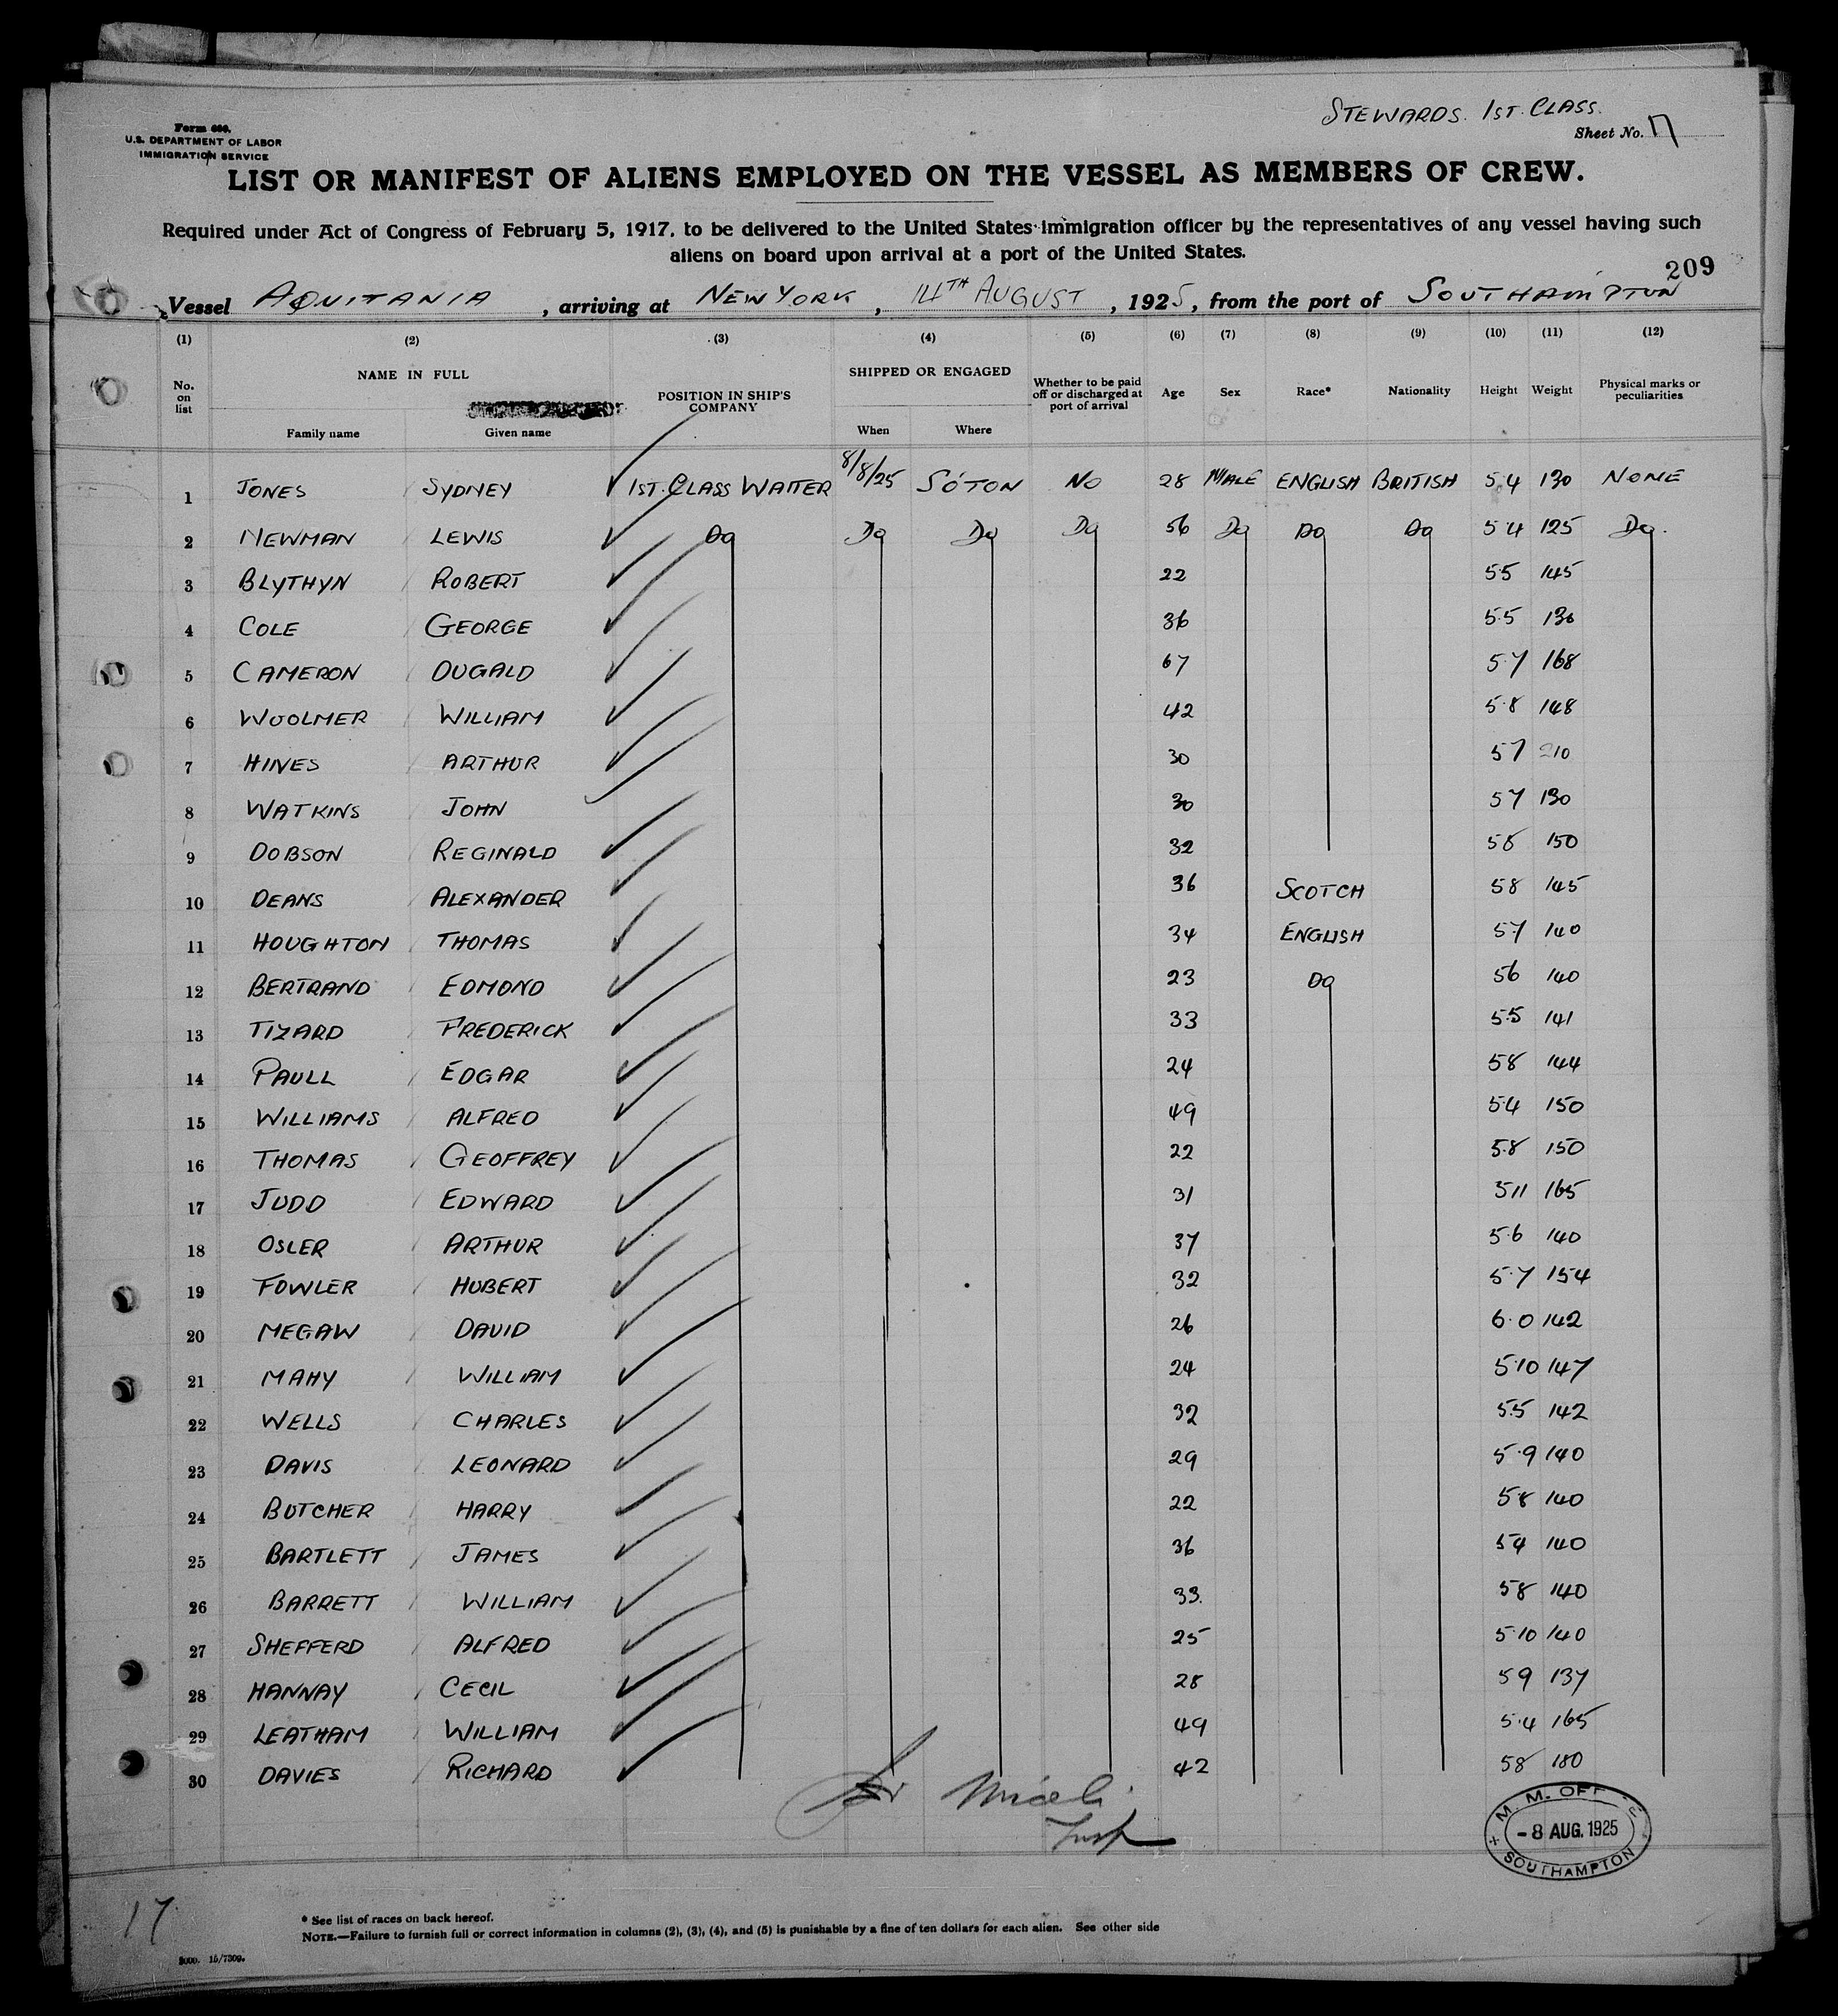 STEWARDS. 1ST. CLASS.
Form 686.
U.S. DEPARTMENT OF LABOR
IMMIGRATION SERVICE
Sheet No. 17
LIST OR MANIFEST OF ALIENS EMPLOYED ON THE VESSEL AS MEMBERS OF CREW.
Required under Act of Congress of February 5, 1917, to be delivered to the United States immigration officer by the representatives of any vessel having such
aliens on board upon arrival at a port of the United States.
209
Vessel AQUITANIA, arriving at NEW YORK, 14TH AUGUST, 1925, from the port of SOUTHAMPTON
(1) (2) (3) (4) (5) (6) (7) (8) (9) (10) (11) (12)
No. on list NAME IN FULL Family name Given name POSITION IN SHIP'S COMPANY SHIPPED OR ENGAGED When Where Whether to be paid off or discharged at port of arrival Age Sex Race* Nationality Height Weight Physical marks or peculiarities
1 JONES SYDNEY 1ST. CLASS WAITER 8/8/25 SO'TON NO 28 MALE ENGLISH BRITISH 5.4 130 NONE
2 NEWMAN LEWIS Do Do Do Do 56 Do Do Do 5.4 125 Do.
3 BLYTHYN ROBERT 22 5.5 145
4 COLE GEORGE 36 5.5 130
5 CAMERON DUGALD 67 5.7 168
6 WOOLMER WILLIAM 42 5.8 148
7 HINES ARTHUR 30 57 210
8 WATKINS JOHN 30 57 130
9 DOBSON REGINALD 32 150
10 DEANS ALEXANDER 36 SCOTCH 58 145
11 HOUGHTON THOMAS 34 ENGLISH 57 140
12 BERTRAND EDMOND 23 Do 56 140
13 TIZARD FREDERICK 33 5.5 141
14 PAULL EDGAR 24 58 144
15 WILLIAMS ALFRED 49 54 150
16 THOMAS GEOFFREY 22 5.8 150
17 JUDD EDWARD 31 511 165
18 OSLER ARTHUR 37 5.6 140
19 FOWLER HUBERT 32 5.7 154
20 MEGAW DAVID 26 6.0 142
21 MAHY WILLIAM 24 5.10 147
22 WELLS CHARLES 32 5.5 142
23 DAVIS LEONARD 29 5.9 140
24 BUTCHER HARRY 22 58 140
25 BARTLETT JAMES 36 54 140
26 BARRETT WILLIAM 33. 58 140
27 SHEFFERD ALFRED 25 5.10 140
28 HANNAY CECIL 28 59 137
29 LEATHAM WILLIAM 49 5.4 165
30 DAVIES RICHARD 42 58 180
M. M. OFF
- 8 AUG. 1925
SOUTHAMPTON
17
* See list of races on back hereof.
NOTE.—Failure to furnish full or correct information in columns (2), (3), (4), and (5) is punishable by a fine of ten dollars for each alien. See other side